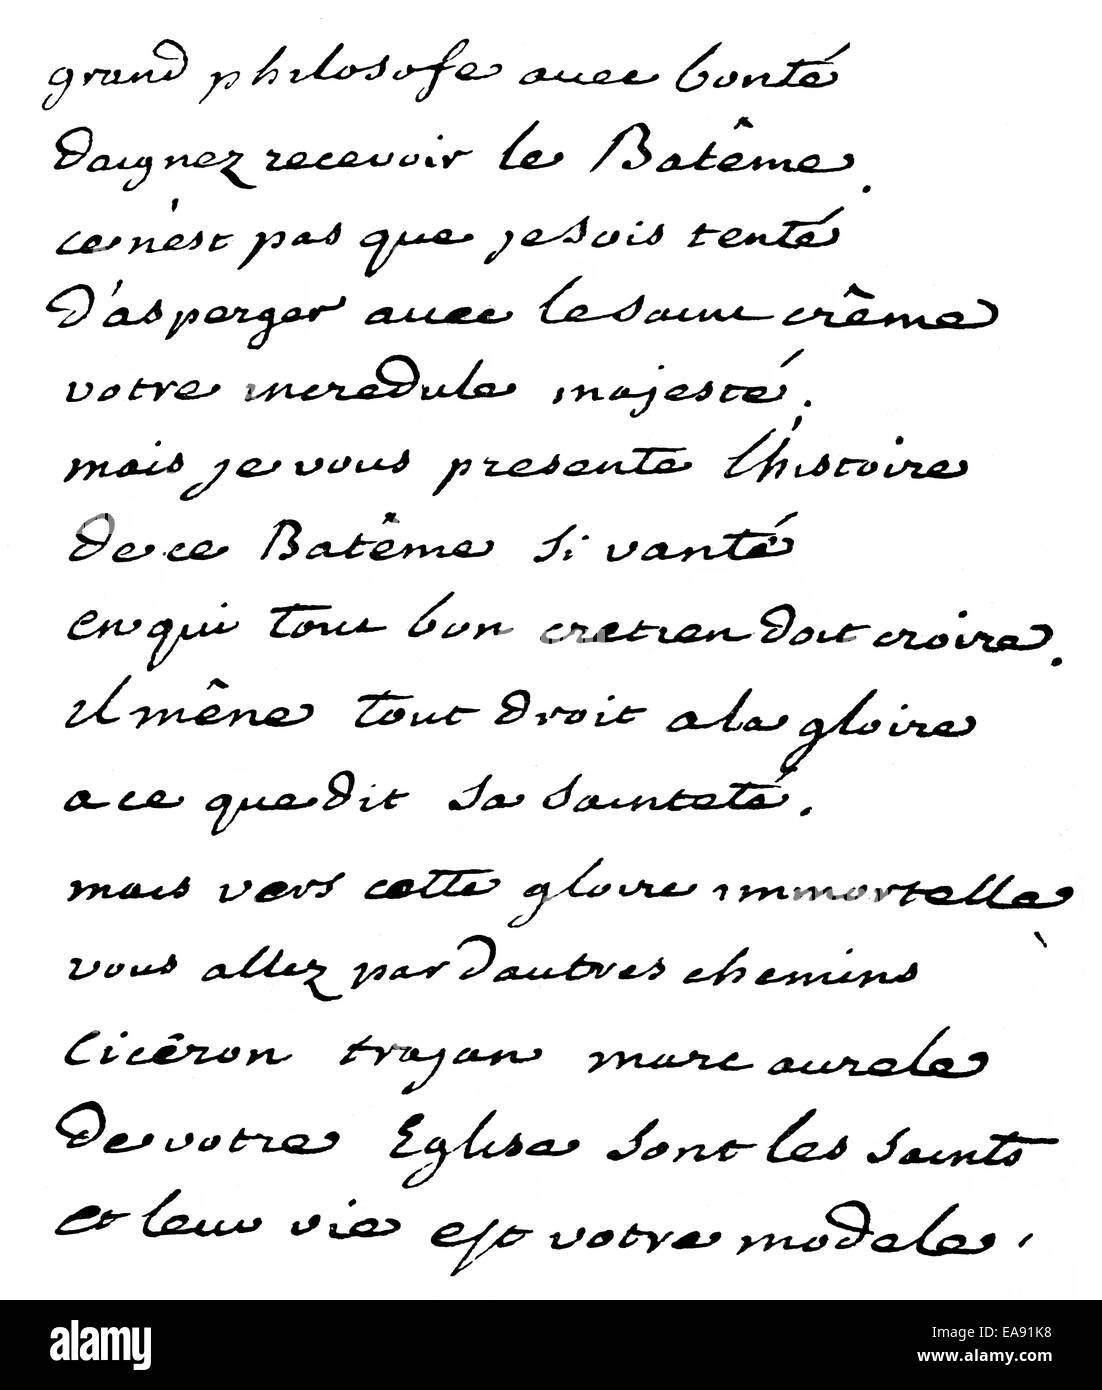 grand philosofe avec bonté
daignez recevoir le Batême.
ce n'est pas que je sois tenté
d'asperger avec le saint crême
votre incredule majesté.
mais je vous presente l'histoire
de ce Batême si vanté
en qui tout bon cretien doit croire.
il mêne tout droit a la gloire
a ce que dit sa sainteté.
mais vers cette gloire immortelle
vous allez par dautres chemins
Cicêron trajan marc aurele
de votre Eglise sont les saints
et leur vie est votre modele.
alamy
Image ID: EA91K8
www.alamy.com